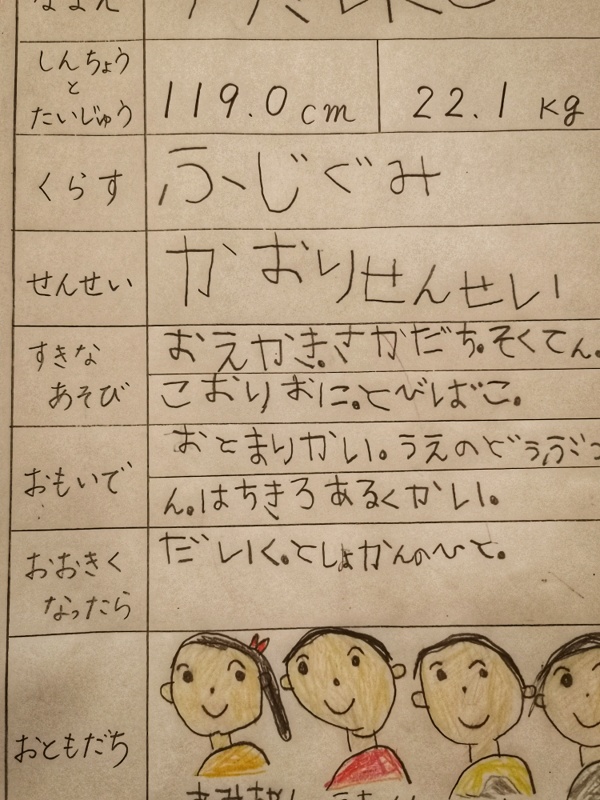 なまえ
しんちょう
と
たいじゅう
119.0 cm
22.1 kg
くらす
ふじぐみ
せんせい
かおりせんせい
すきな
あそび
おえかき。さかだち。そくてん。
こおりおに。とびばこ。
おもいで
おとまりかい。うえのどうぶつ
ん。はちきろあるくかい。
おおきく
なったら
だいく。としょかんのひと。
おともだち